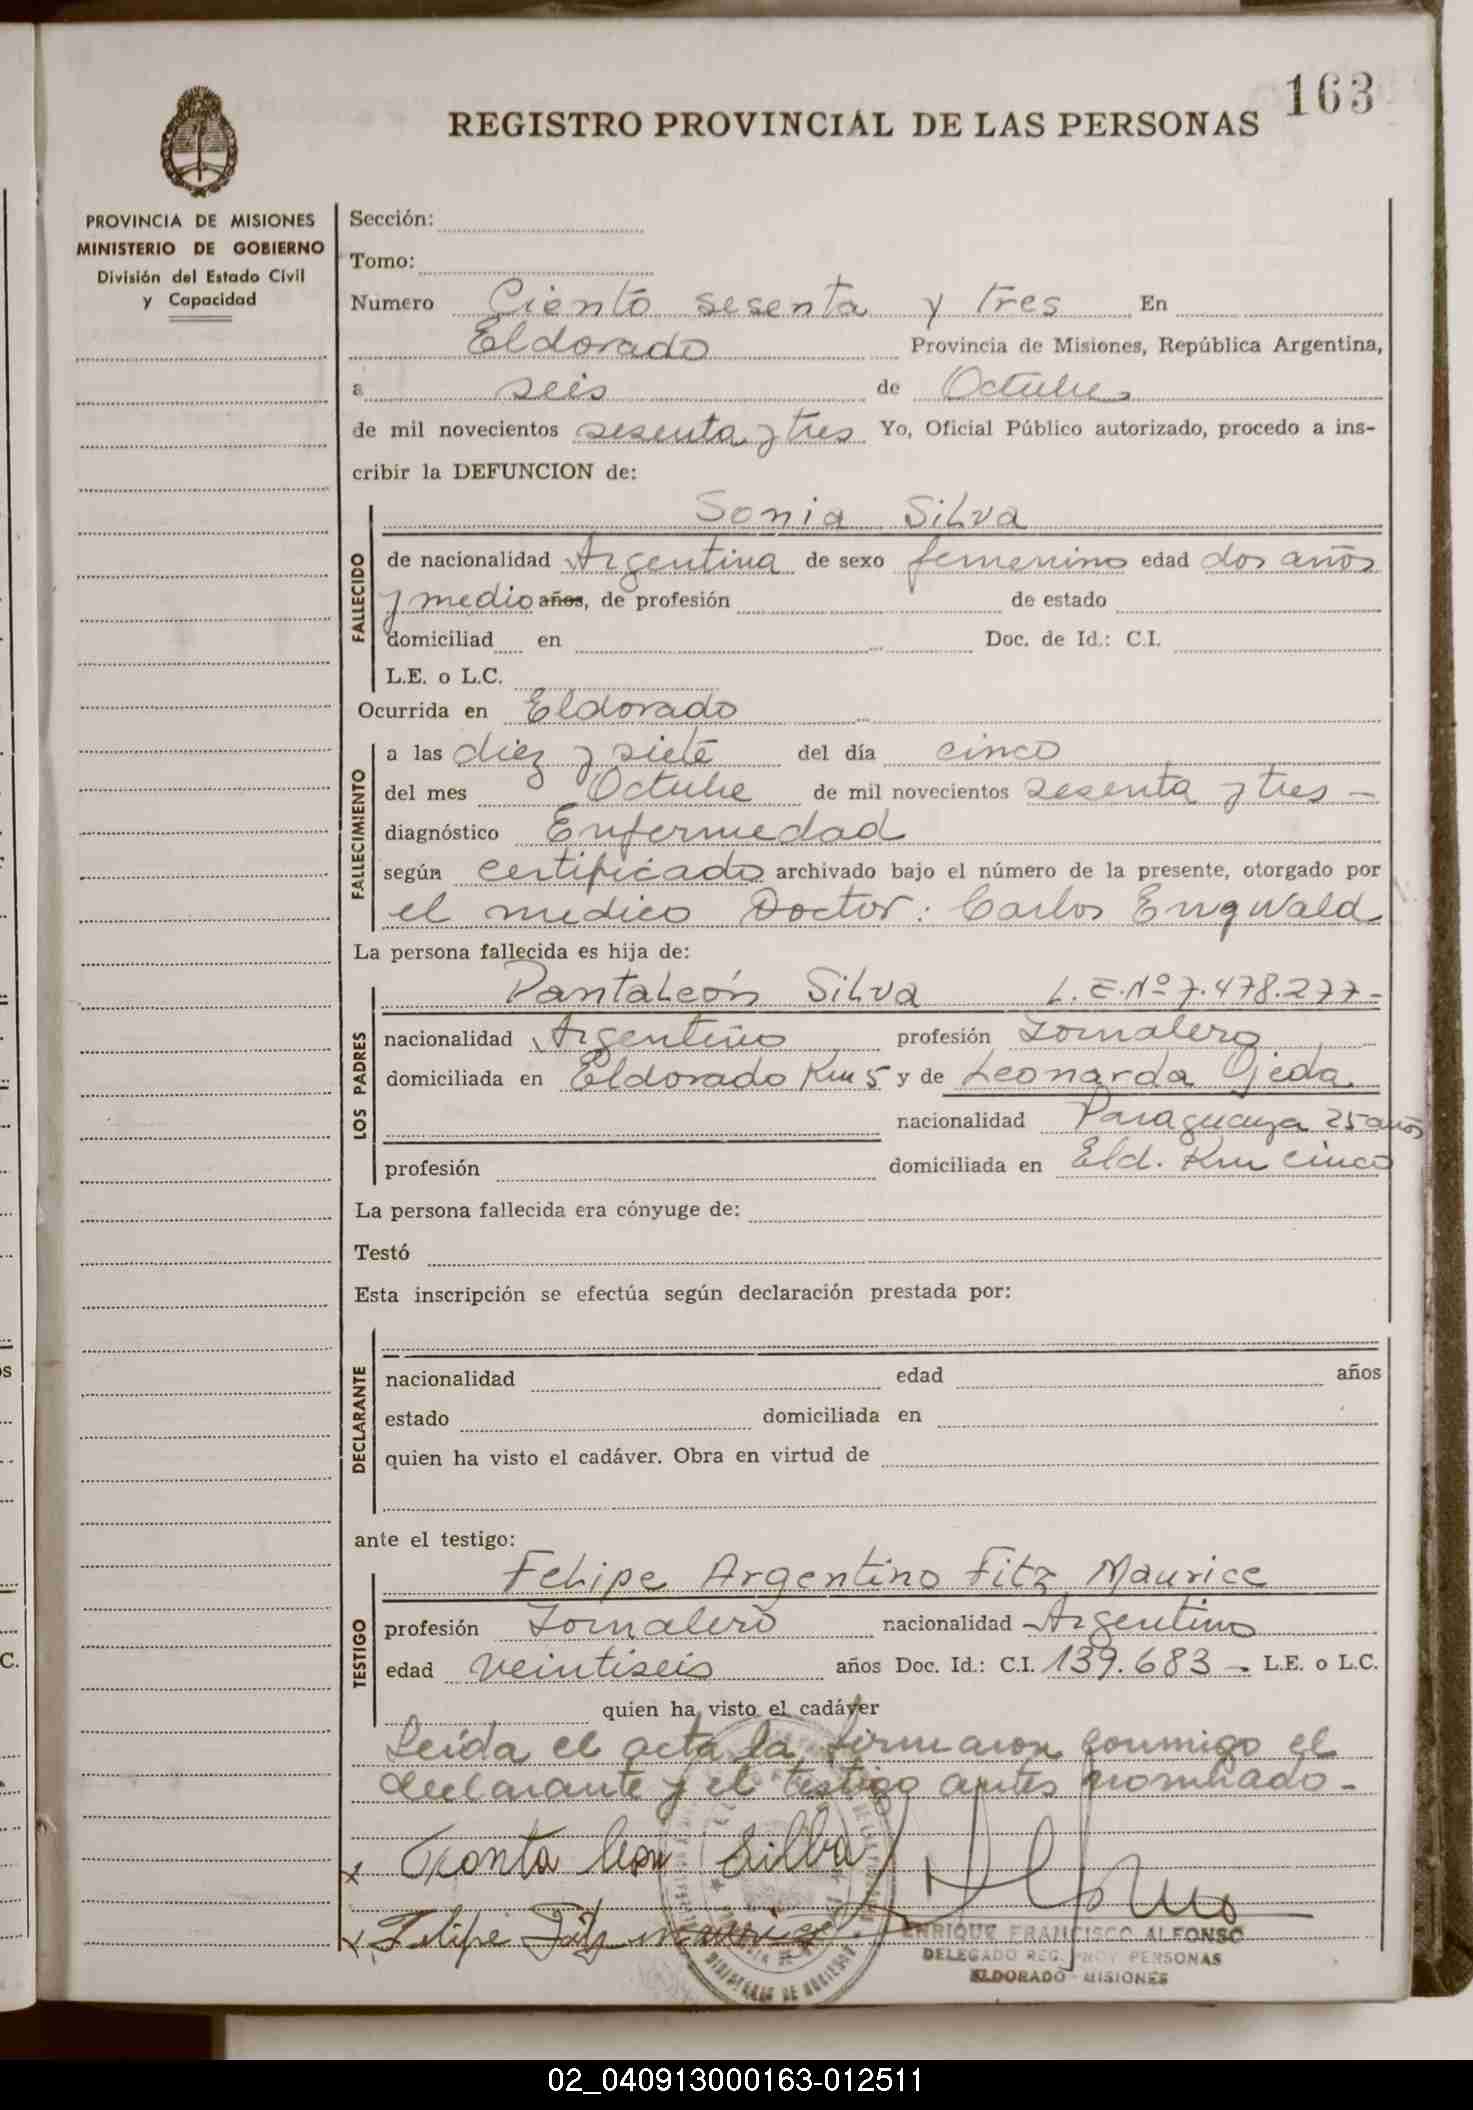 163
REGISTRO PROVINCIAL DE LAS PERSONAS
PROVINCIA DE MISIONES
MINISTERIO DE GOBIERNO
División del Estado Civil
y Capacidad
Sección:
Tomo:
Numero Ciento sesenta y tres En
Eldorado Provincia de Misiones, República Argentina,
a seis de Octubre
de mil novecientos sesenta y tres Yo, Oficial Público autorizado, procedo a ins-
cribir la DEFUNCION de:
Sonia Silva
FALLECIDO
de nacionalidad Argentina de sexo femenino edad dos años
y medio años, de profesión de estado
domiciliad en Doc. de Id.: C.I.
L.E. o L.C.
Ocurrida en Eldorado
FALLECIMIENTO
a las diez y siete del día cinco
del mes Octubre de mil novecientos sesenta y tres -
diagnóstico Enfermedad
según certificado archivado bajo el número de la presente, otorgado por
el medico Doctor: Carlos Engwald
La persona fallecida es hija de:
LOS PADRES
Pantaleón Silva L.E.Nº 7.478.277-
nacionalidad Argentino profesión Jornalero
domiciliada en Eldorado Km 5 y de Leonarda Ojeda
nacionalidad Paraguaya 25 años
profesión domiciliada en Eld. Km cinco
La persona fallecida era cónyuge de:
Testó
Esta inscripción se efectúa según declaración prestada por:
DECLARANTE
nacionalidad edad años
estado domiciliada en
quien ha visto el cadáver. Obra en virtud de
ante el testigo:
TESTIGO
Felipe Argentino Fitz Maurice
profesión Jornalero nacionalidad Argentino
edad veintiseis años Doc. Id.: C.I. 139.683 - L.E. o L.C.
quien ha visto el cadáver
Leída el acta la firmaron conmigo el
declarante y el testigo antes nombrado -
x Panta leon Silba
x Felipe Fitz maurice
ENRIQUE FRANCISCO ALFONSO
DELEGADO REG. PROV PERSONAS
ELDORADO - MISIONES
02_040913000163-012511